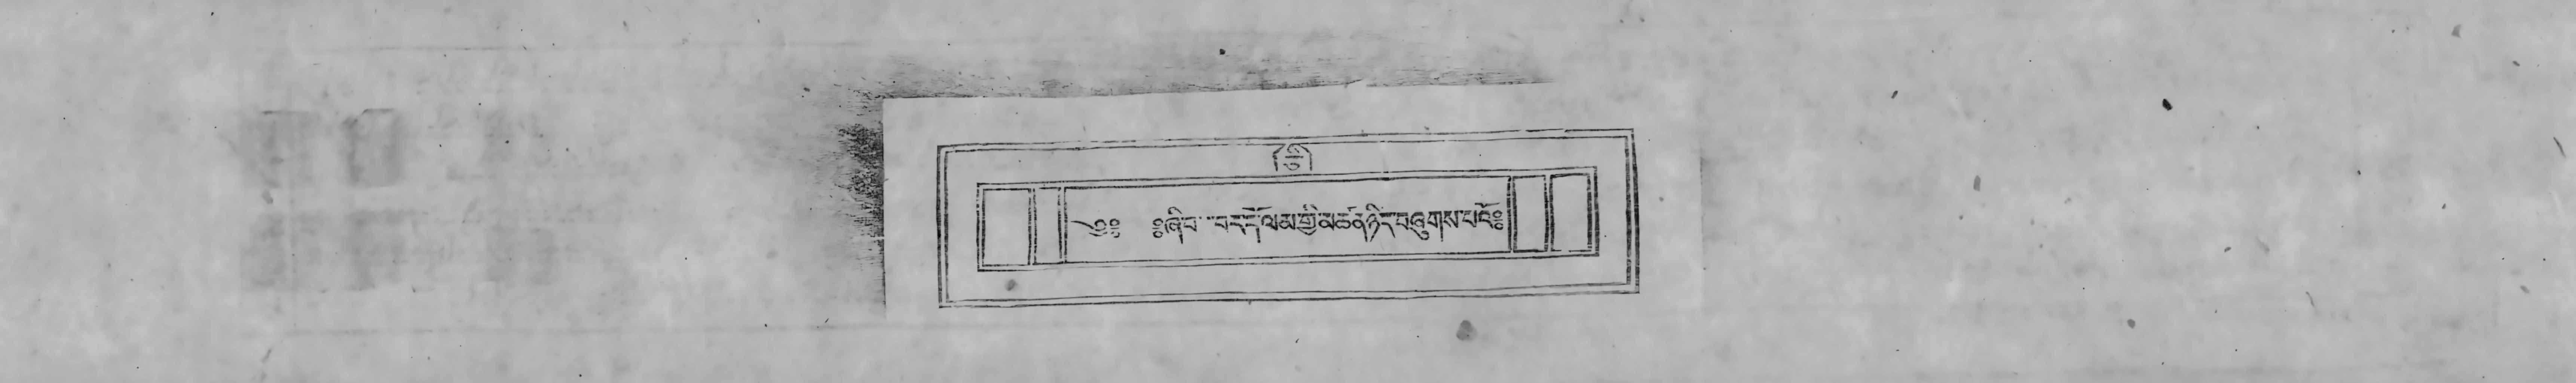 ༄༔ ༔ཞི་བ་ བར་དོ་ལམ་གྱི་མཚན་ཉིད་བཞུགས་པའོ༔